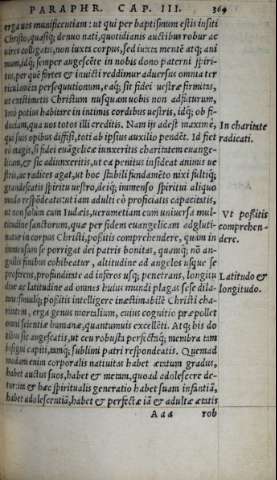 PARAPHR. CAP. III. 369
erga uos munificentiam: ut qui per baptismum estis insiti
Christo, quasiq; denuo nati, quotidianis auctibus robur ac
uires colligatis, non iuxta corpus, sed iuxta mentē atq; ani
mum, idq; semper augescēte in nobis dono paterni spiri-
tus, per quē fortes & inuicti reddimur aduersus omnia ter
riculamēta persequutionum, eaq; sit fidei uestræ firmitas,
ut existimetis Christum nusquam uobis non adfuturum,
Imò potius habitare in intimis cordibus uestris, idq; ob fi-
duciam, qua uos totos illi creditis. Nam ijs adest maximē,
qui suis opibus diffisi, toti ab ipsius auxilio pendēt. Id fiet
eò magis, si fidei euāgelicæ innexeritis charitatem euange-
licam, & sic adiunxeritis, ut ea penitus insideat animis ue
stris, ac radices agat, ut hoc stabili fundamēto nixi fultiq;
grandescatis spiritu uestro, deiq; immenso spiritui aliquo
modo respōdeatis: ut iam adulti eò proficiatis capacitatis,
ut non solum cum Iudæis, uerumetiam cum uniuersa mul-
titudine sanctorum, quæ per fidem euangelicam adgluti-
natur in corpus Christi, possitis comprehendere, quàm in
immensum se porrigat dei patris bonitas, quamq; nō an-
gustis finibus cohibeatur, altitudine ad angelos usque se
proferens, profunditate ad inferos usq; penetrans, longitu
dine ac latitudine ad omnes huius mundi plagas sese dila-
tans: similiq; possitis intelligere inæstimabilē Christi cha-
ritatem, erga genus mortalium, cuius cognitio præpollet
omni scientiæ humanæ, quantumuis excellēti. Atq; his do
tibus sic augescatis, ut ceu robusta perfectaq; membra tam
insigni capiti, tamq; sublimi patri respondeatis. Quemad
modum enim corporalis natiuitas habet ætatum gradus,
habet auctus suos, habet & metam, quoad adolescere de-
tur: ita & hæc spiritualis generatio habet suam infantiā,
habet adolescentiā, habet & perfectæ iā & adultæ ætatis
Aaa rob
In charitate
radicati.
Vt possitis
comprehen-
dere.
Latitudo &
longitudo.